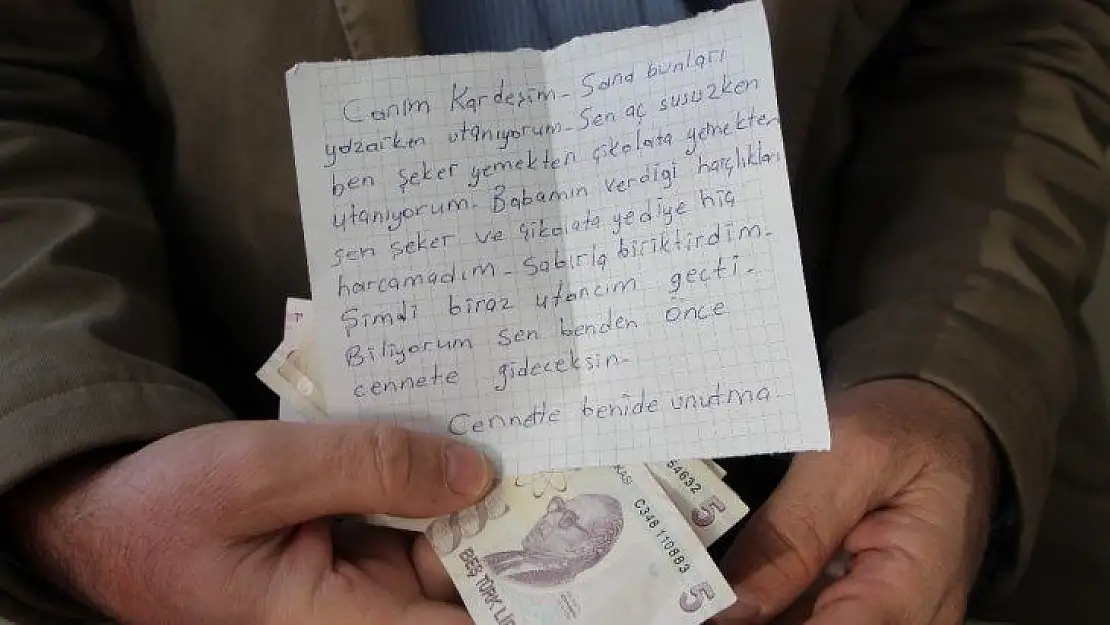 Canım Kardeşim - Sana bunları
yazarken utanıyorum - Sen aç susuzken
ben şeker yemekten çikolata yemekten
utanıyorum - Babamın verdiği harçlıkları
sen şeker ve çikolata yediye hiç
harcamadım - Sabırla biriktirdim -
Şimdi biraz utancım geçti -
Biliyorum sen benden Önce
cennete gideceksin -
Cennette benide unutma -
54632
5
KASI
C348110883
5
BEŞ TÜRK Lİ